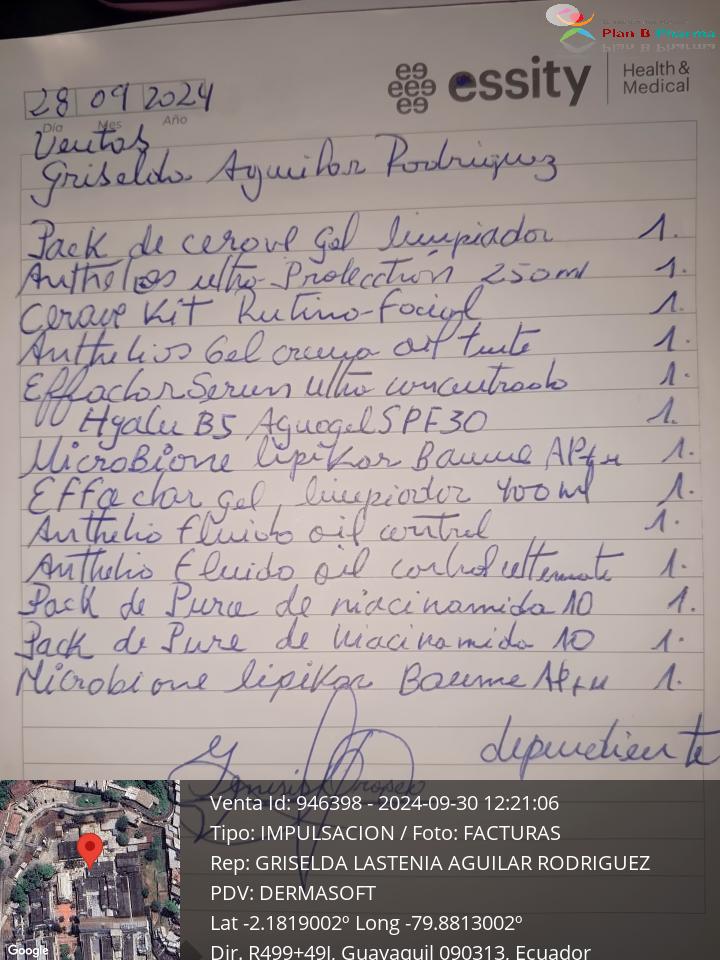 Plan B Pharma
essity
Health &
Medical
28 09 2024
Día Mes Año
Ventas
Griselda Aguilar Rodriguez
Pack de cerave gel limpiador 1.
Anthelios ultra Protección 250ml 1.
Cerave Kit Rutina-Facial 1.
Anthelios Gel crema oil 1.
Effaclar Serum ultra concentrado 1.
Hyalu B5 Aquagel SPF30 1.
MicroBione lipikar Baume AP+M 1.
Effaclar gel limpiador 400ml 1.
Anthelio fluido oil control 1.
Anthelio fluido oil control 1.
Pack de Pure de niacinamida 10 1.
Pack de Pure de Niacinamida 10 1.
Microbione lipikar Baume AP+M 1.
dependiente
Venta Id: 946398 - 2024-09-30 12:21:06
Tipo: IMPULSACION / Foto: FACTURAS
Rep: GRISELDA LASTENIA AGUILAR RODRIGUEZ
PDV: DERMASOFT
Lat -2.1819002º Long -79.8813002º
Dir. R499+49J, Guayaquil 090313, Ecuador
Google